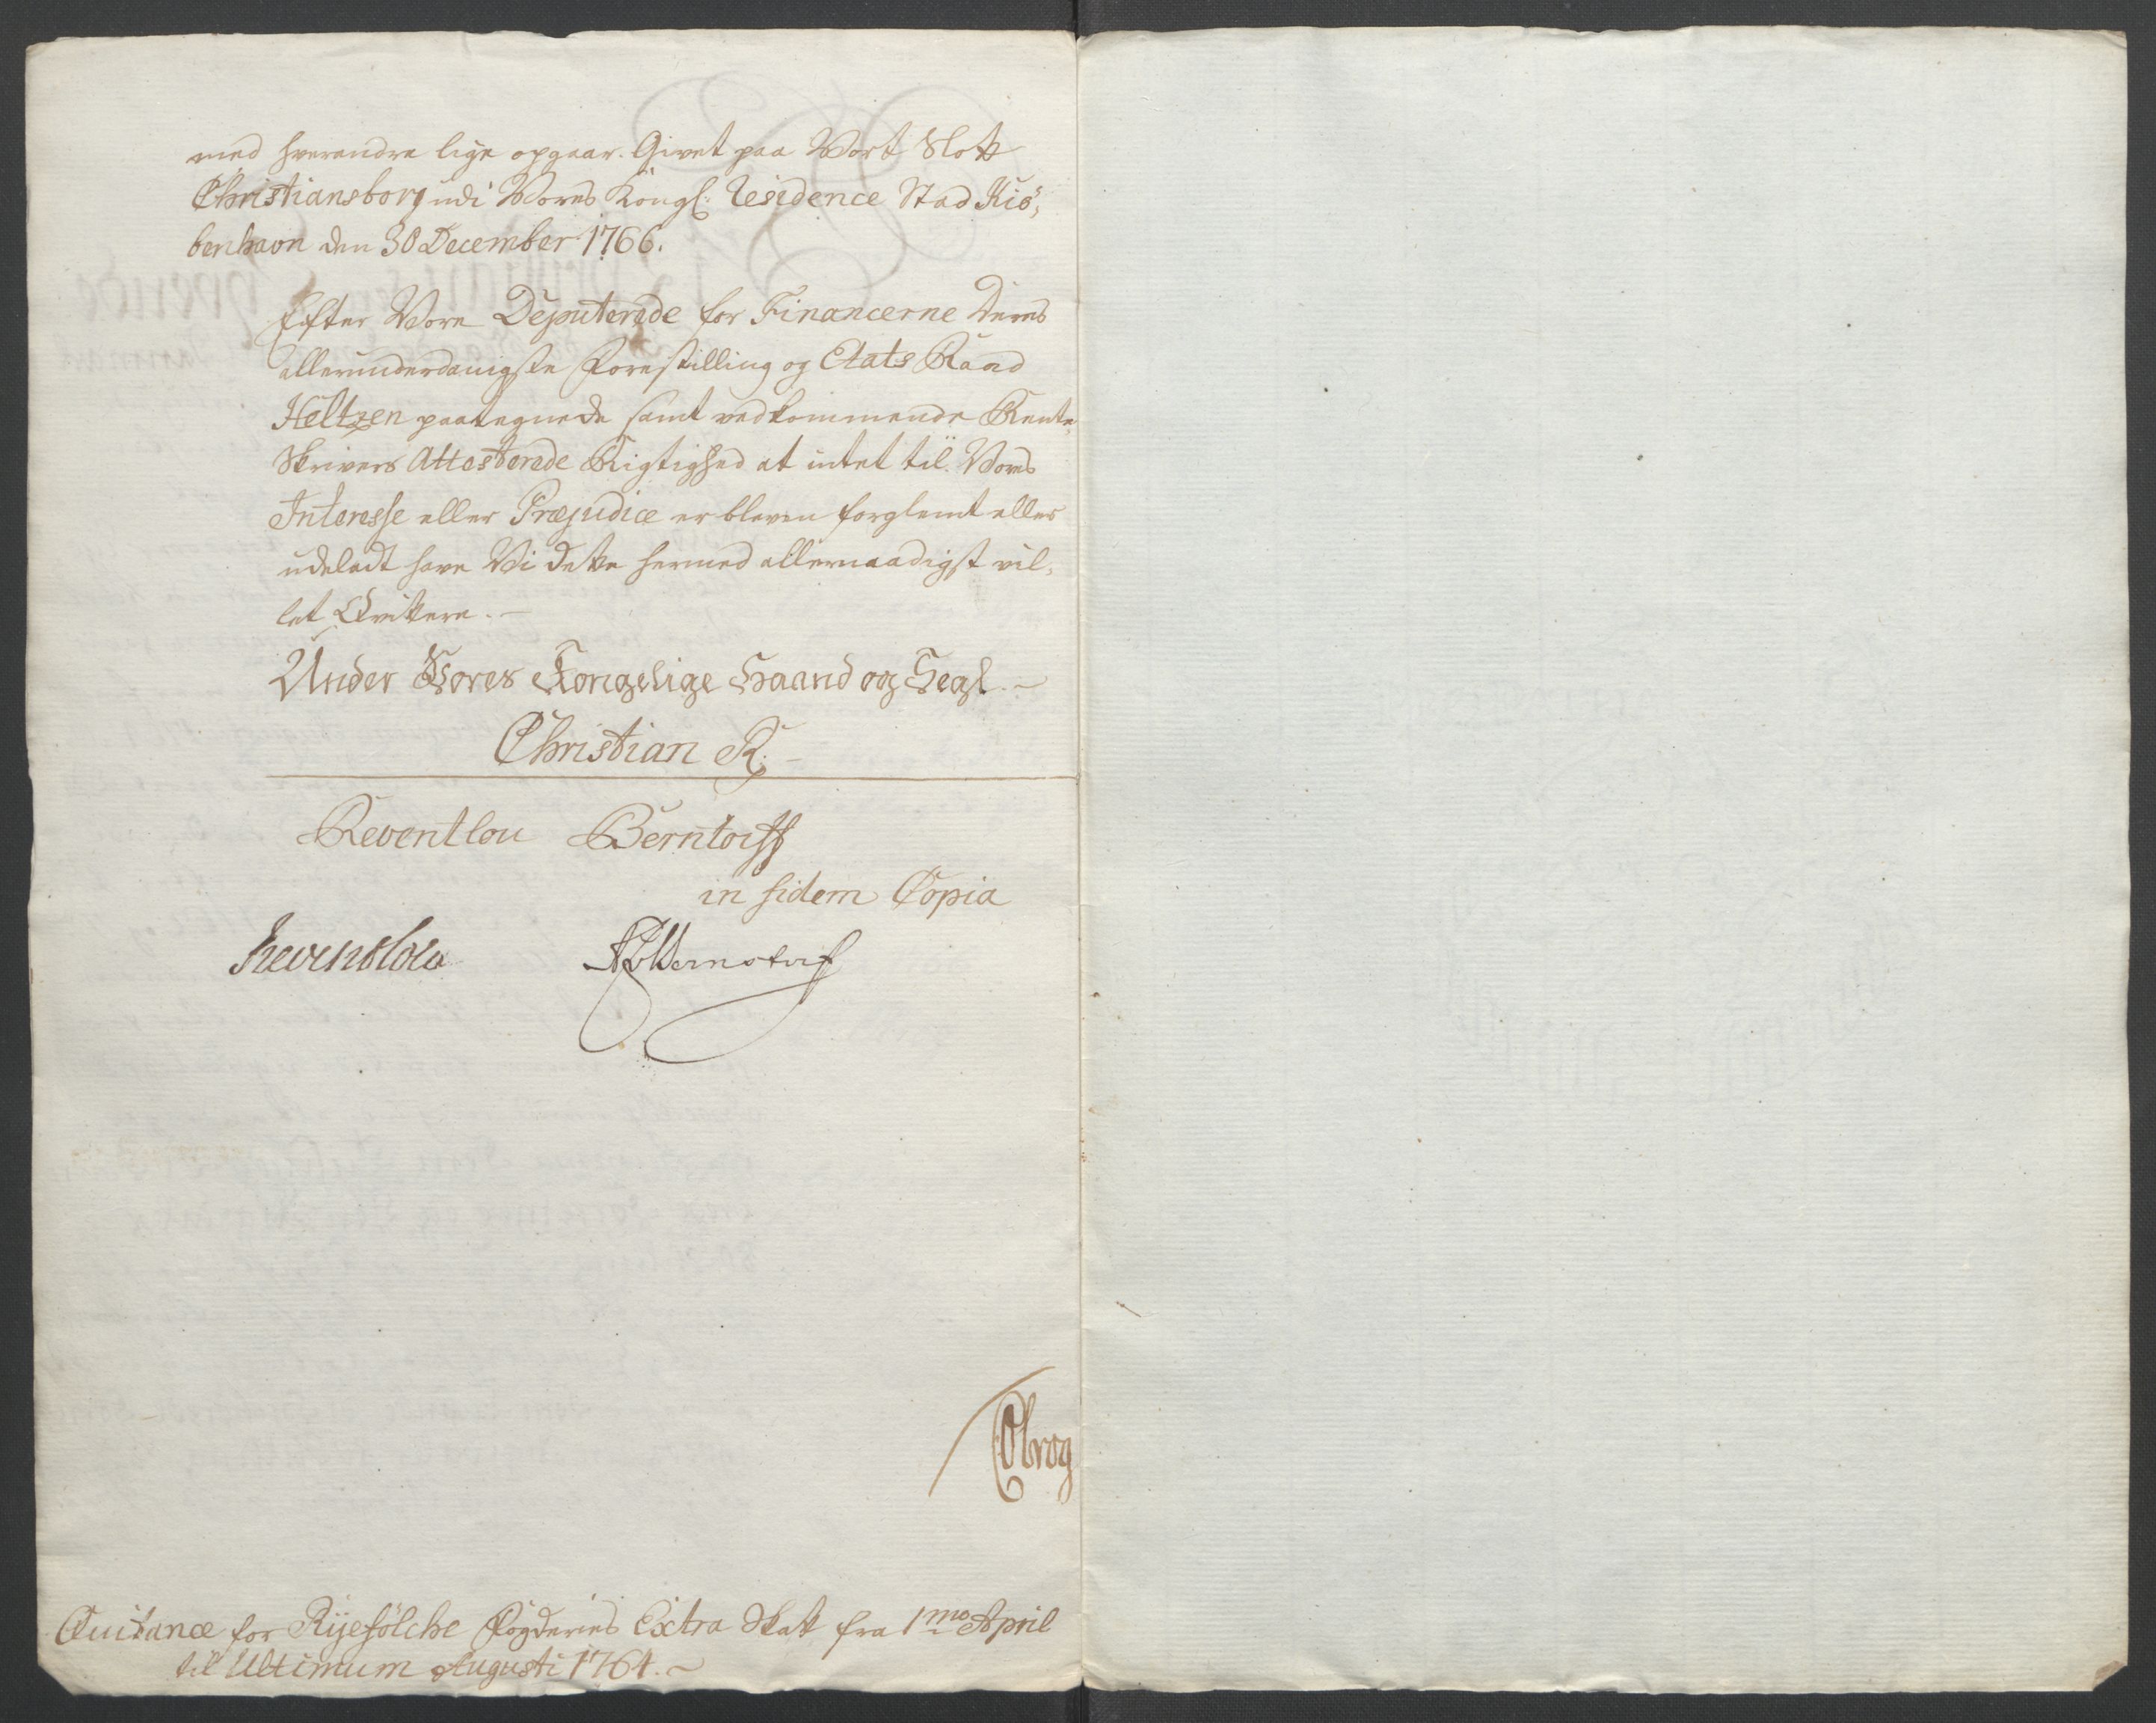 med hverandre lige opgaar. Givet paa Vort Slott
Christiansborg udi Vores Kongl: Residence Stad Kiö,
benhavn den 30 December 1766.
Efter Vore Deputerede for Financerne Deres
allerunderdanigste Forestilling og Etats Raad
Heltzen paategnede samt vedkommende Rente,
Skrivers Attesterede Rigtighed at intet til Vores
Interesse eller Præjudice er bleven forglemt eller
udeladt have Vi dette hermed allernaadigst vil,
let Qvittere.
Under Vores Kongelige Haand og Segl.
Christian R:
Reventlou Berntorff
in fidem Copia
Reventlou
Qvitance for Ryefölche Fogderies Extra Skatt fra 1mo April
til Ultimum Augusti 1764.